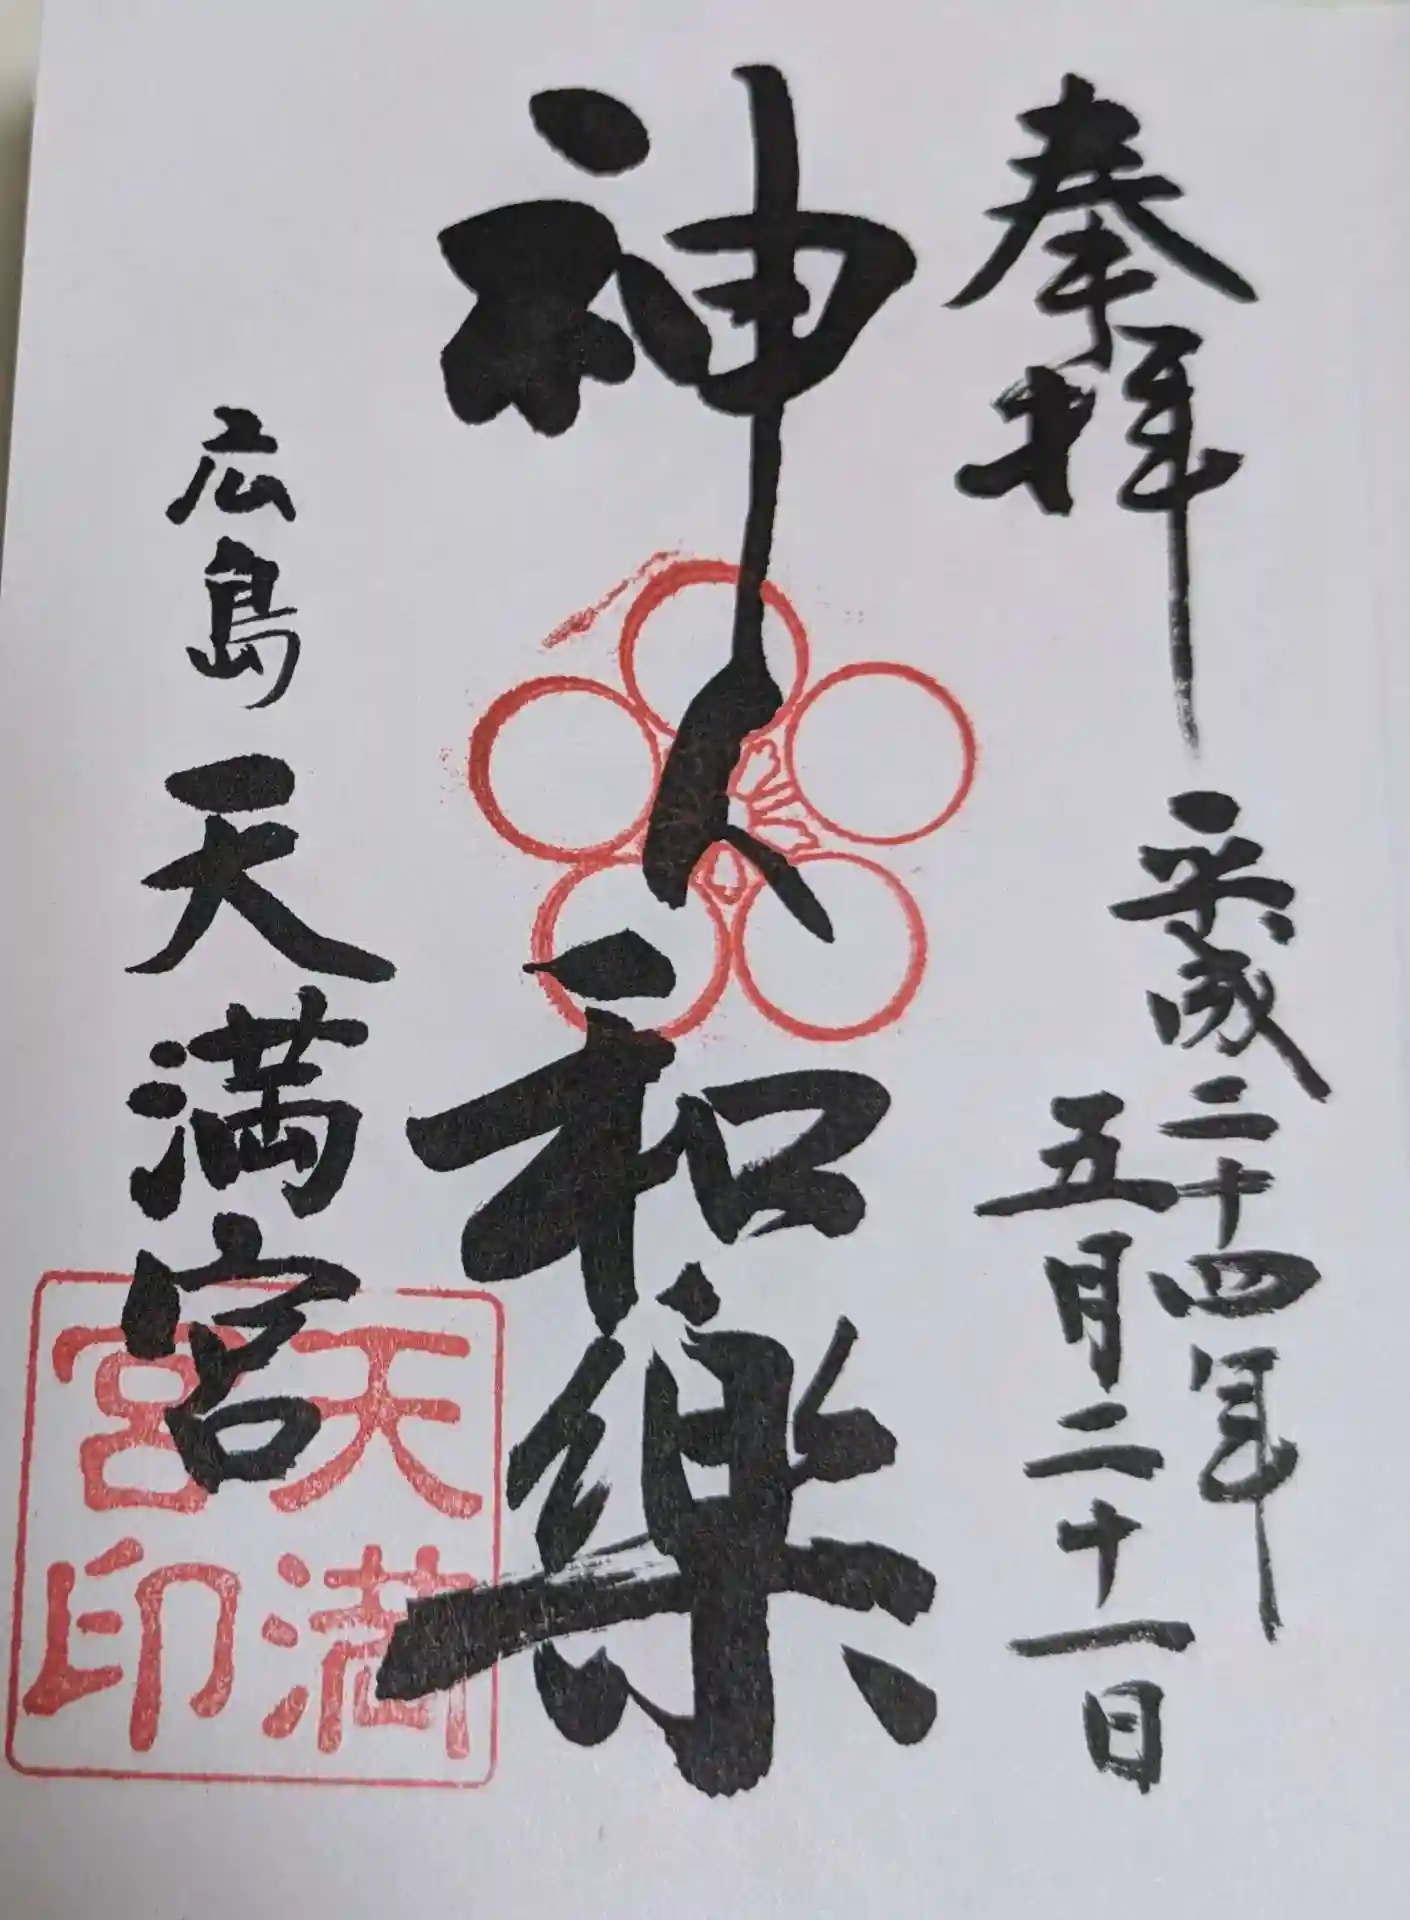 奉拝
平成二十四年
五月二十一日
神人和樂
広島天満宮
天満
宮印